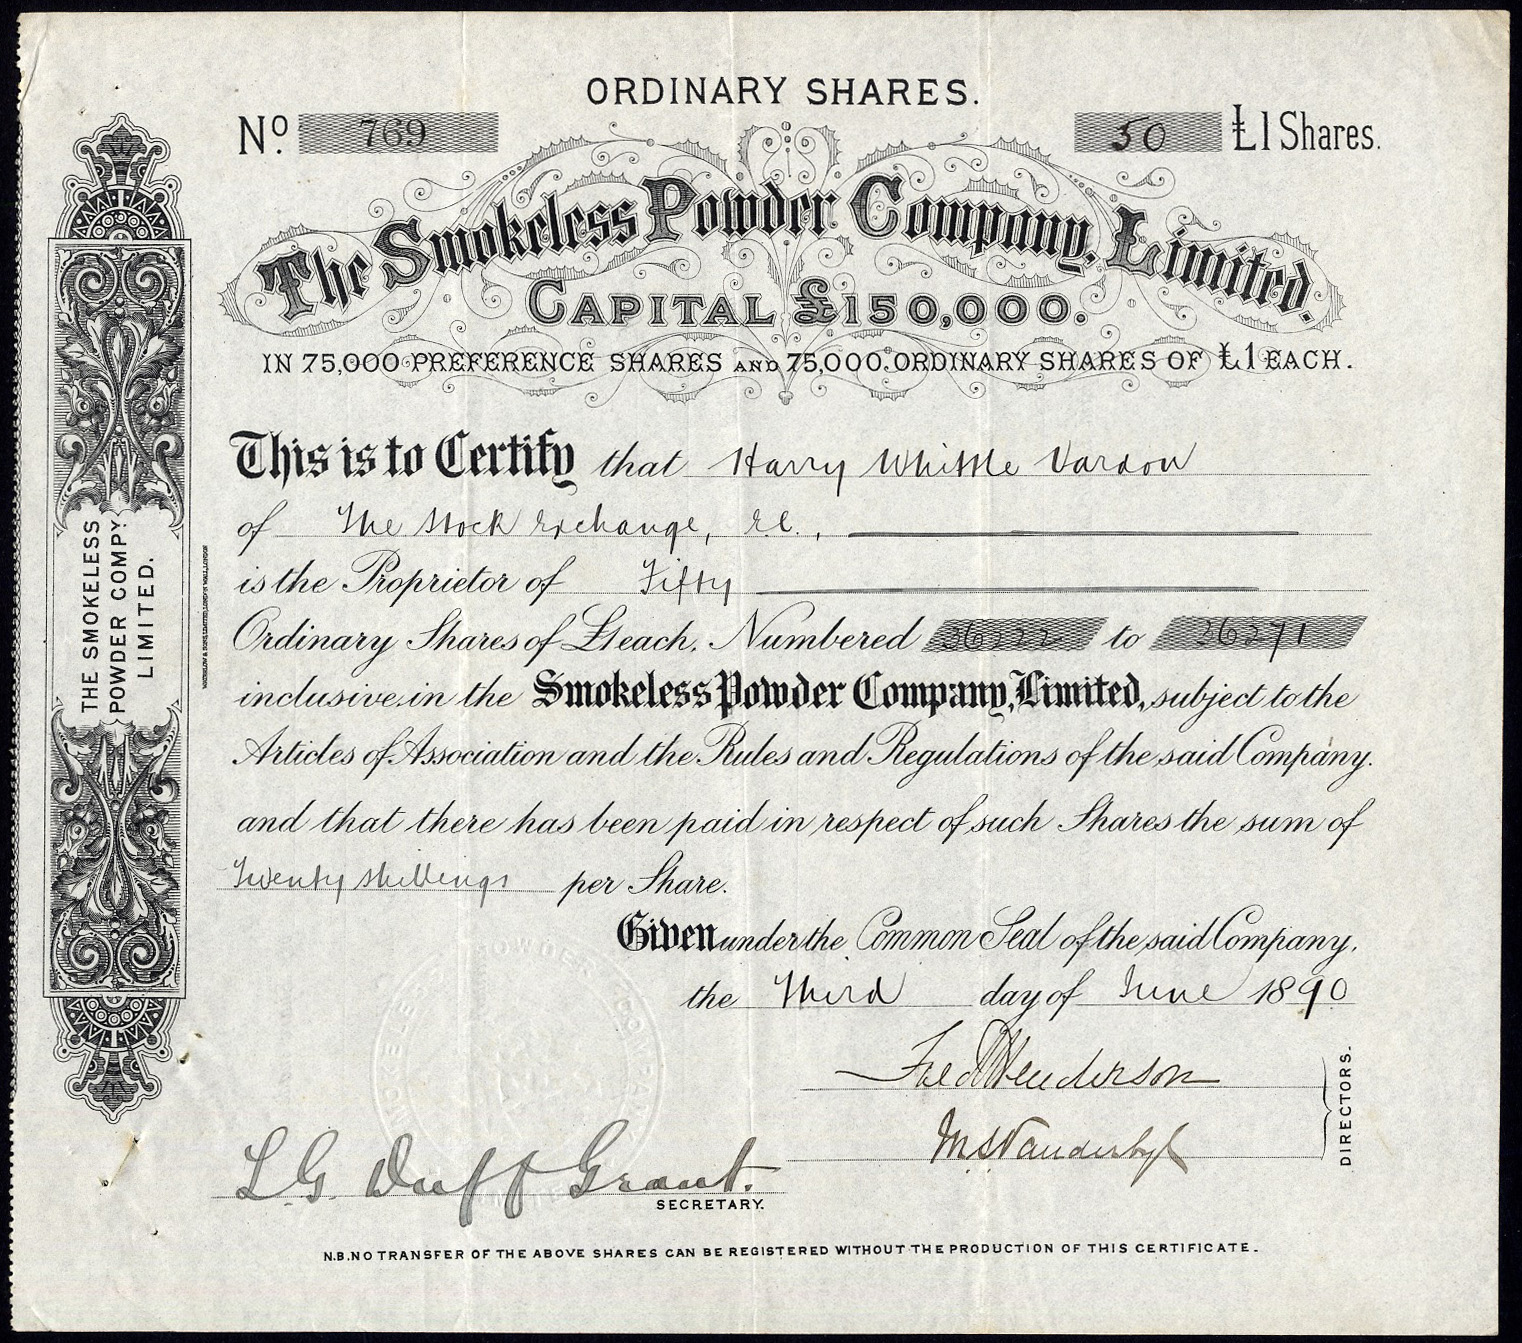 ORDINARY SHARES.
No. 769
50 £1 Shares.
The Smokeless Powder Company, Limited.
CAPITAL £150,000.
IN 75,000 PREFERENCE SHARES AND 75,000 ORDINARY SHARES OF £1 EACH.
This is to Certify that Harry Whittle Vardon
of The Stock Exchange, E.C.,
is the Proprietor of Fifty
Ordinary Shares of £1 each, Numbered 26222 to 26271
inclusive in the Smokeless Powder Company, Limited, subject to the
Articles of Association and the Rules and Regulations of the said Company.
and that there has been paid in respect of such Shares the sum of
Twenty shillings per Share.
Given under the Common Seal of the said Company,
the Third day of June 1890
Henderson
M S Vanderbyl
DIRECTORS.
L. G. Duff Grant.
SECRETARY.
N.B. NO TRANSFER OF THE ABOVE SHARES CAN BE REGISTERED WITHOUT THE PRODUCTION OF THIS CERTIFICATE.
THE SMOKELESS
POWDER COMPY.
LIMITED.
WATERLOW & SONS LIMITED, LONDON WALL, LONDON